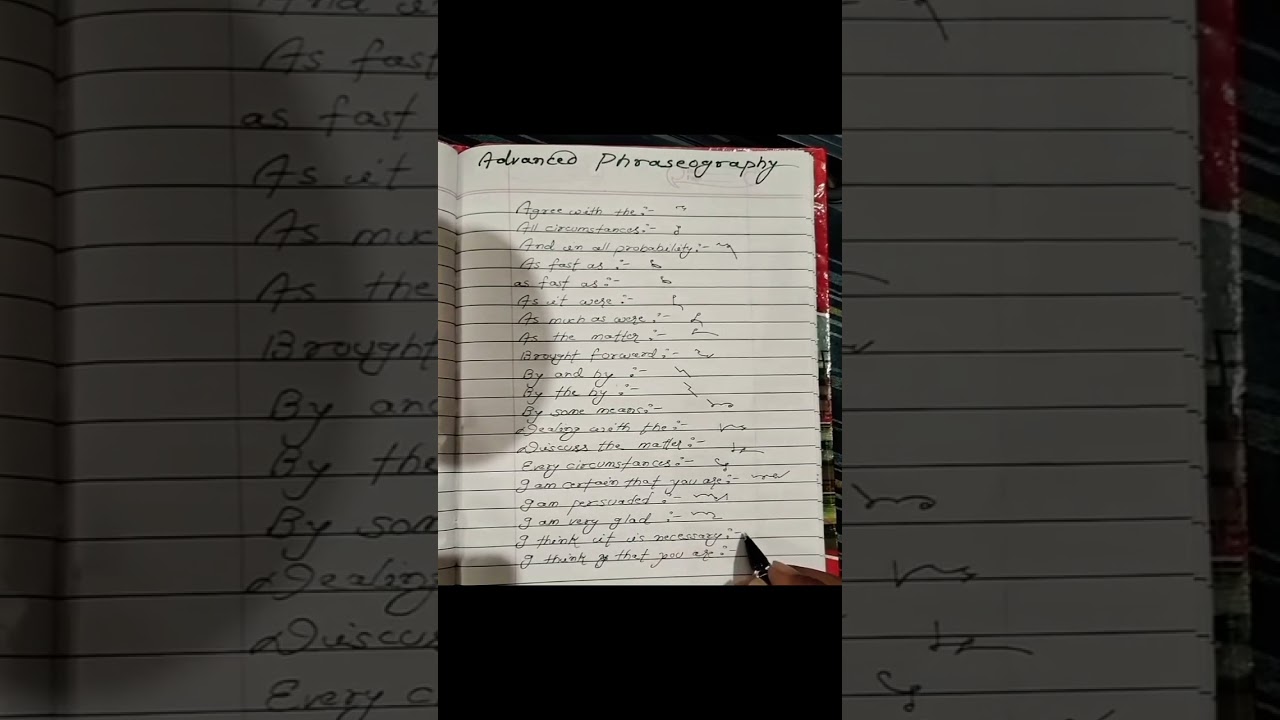 Advanced Phraseography
Agree with the :-
All circumstances :-
And in all probability :-
As fast as :-
as fast as :-
As it were :-
As much as were :-
As the matter :-
Brought forward :-
By and by :-
By the by :-
By some means :-
Dealing with the :-
Discuss the matter :-
Every circumstances :-
I am certain that you are :-
I am persuaded :-
I am very glad :-
I think it is necessary :-
I think that you are :-